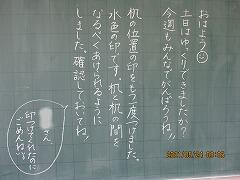 おはよう
土日はゆっくりできましたか?
今週もみんなでがんばろうね!
机の位置の印をもう一度つけました。
水色の印です。机と机の間を
なるべくあけられるように
しました。確認しておいてね!
さん
印つけてくれたのに
ごめんね